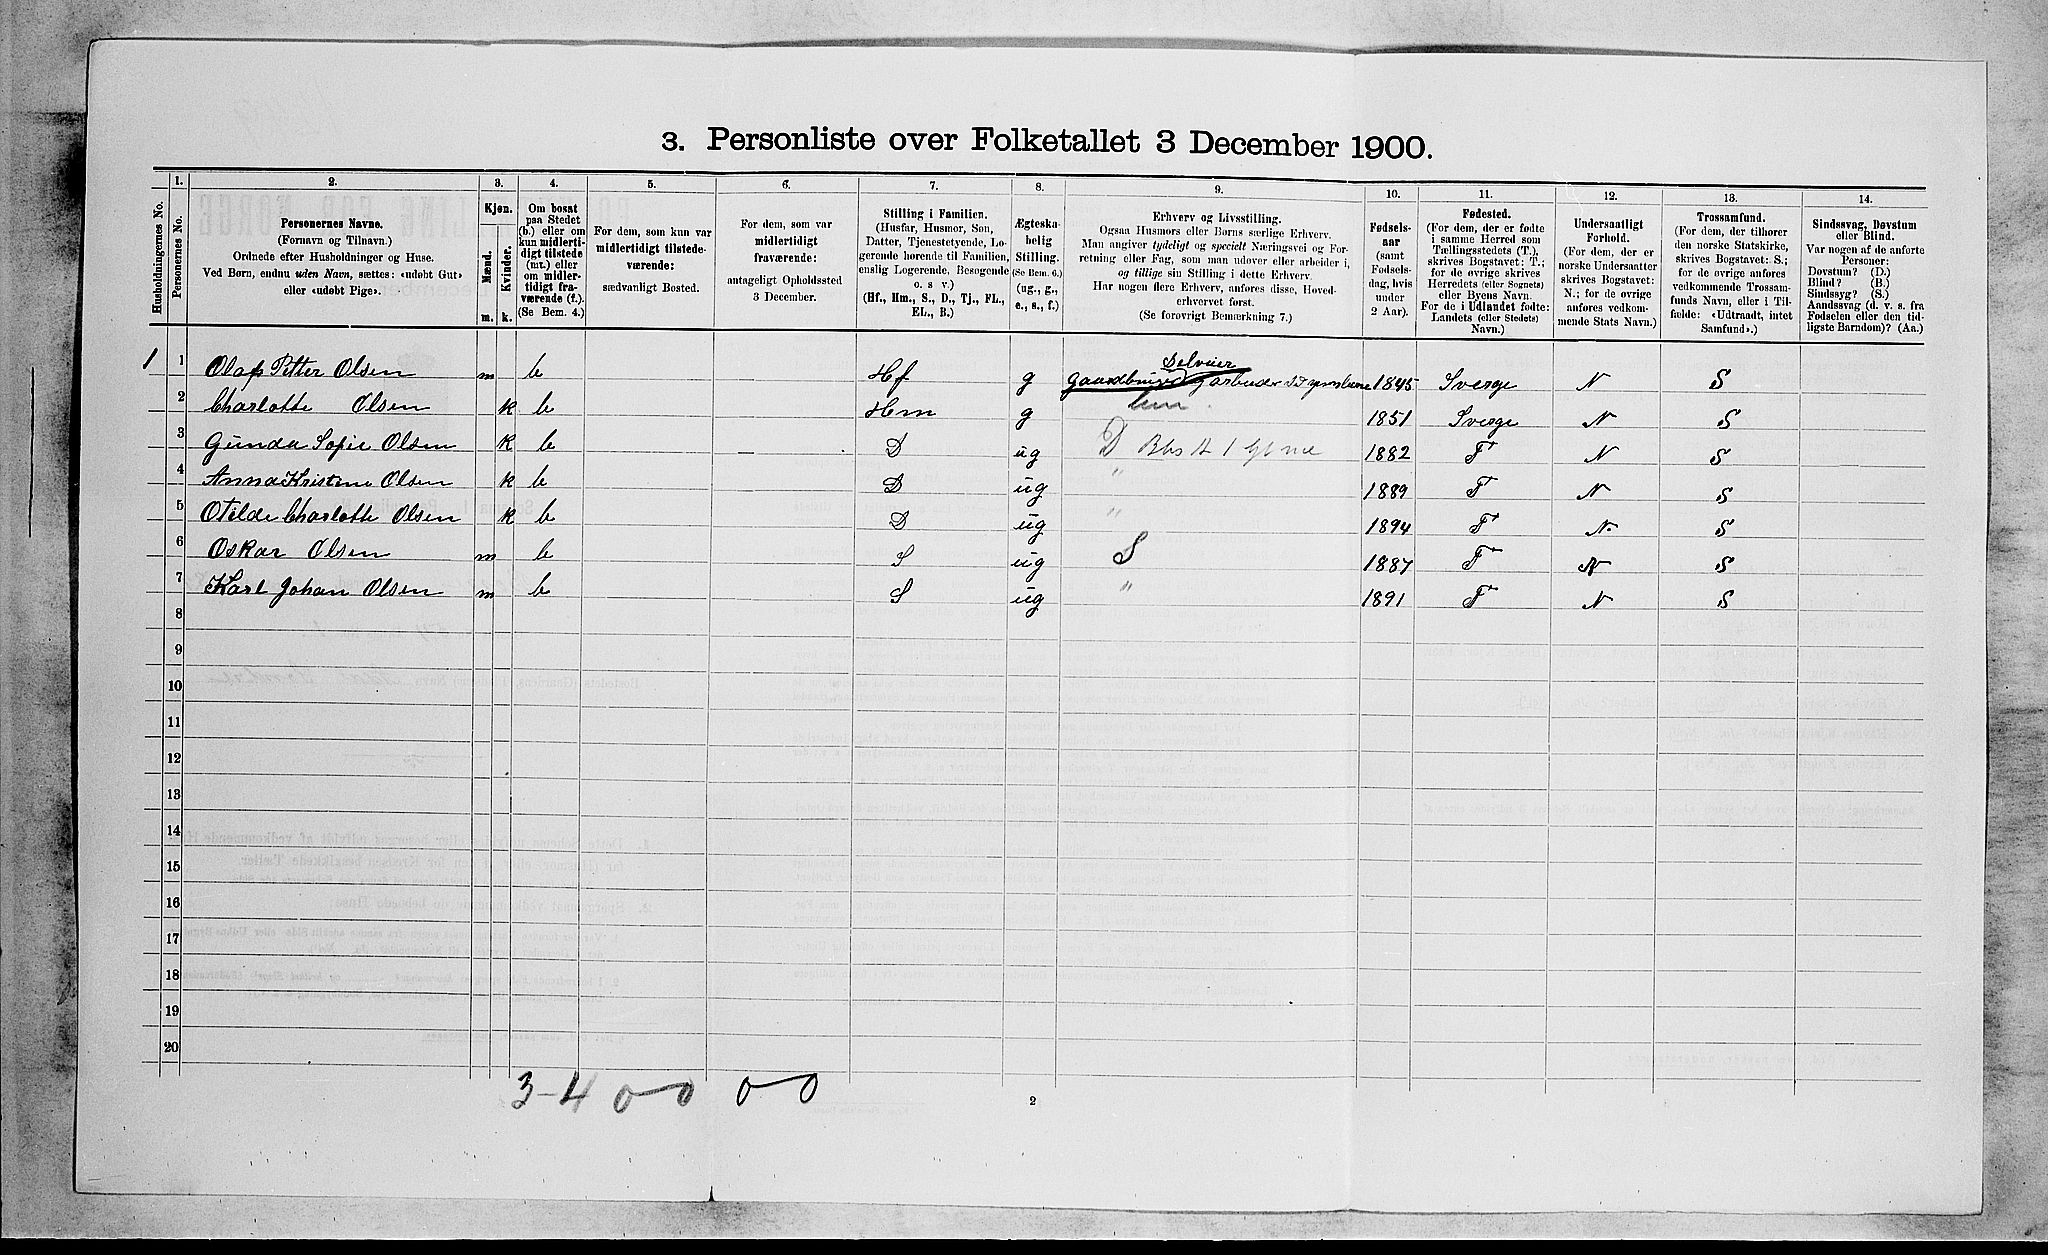 3. Personliste over Folketallet 3 December 1900.
Husholdningernes No.
1.
Personernes No.
2.
Personernes Navne.
(Fornavn og Tilnavn.)
Ordnede efter Husholdninger og Huse.
Ved Børn, endnu uden Navn, sættes: «udøbt Gut»
eller «udøbt Pige».
3.
Kjøn.
Mænd.
Kvinder.
m.
k.
4.
Om bosat
paa Stedet
(b.) eller om
kun midlerti-
digt tilstede
(mt.) eller
om midler-
tidigt fra-
værende (f.).
(Se Bem. 4.)
5.
For dem, som kun var
midlertidigt tilstede-
værende:
sædvanligt Bosted.
6.
For dem, som var
midlertidigt
fraværende:
antageligt Opholdssted
3 December.
7.
Stilling i Familien.
(Husfar, Husmor, Søn,
Datter, Tjenestetyende, Lo-
gerende hørende til Familien,
enslig Logerende, Besøgende
o. s. v.)
(Hf., Hm., S., D., Tj., FL.,
EL., B.)
8.
Ægteska-
belig
Stilling.
(Se Bem. 6.)
(ug., g.,
e., s., f.)
9.
Erhverv og Livsstilling.
Ogsaa Husmors eller Børns særlige Erhverv.
Man angiver tydeligt og specielt Næringsvei og For-
retning eller Fag, som man udøver eller arbeider i,
og tillige sin Stilling i dette Erhverv.
Har nogen flere Erhverv, anføres disse, Hoved-
erhvervet først.
(Se forøvrigt Bemærkning 7.)
10.
Fødsels-
aar
(samt
Fødsels-
dag, hvis
under
2 Aar).
11.
Fødested.
(For dem, der er fødte
i samme Herred som
Tællingsstedets (T.),
skrives Bogstavet: T.;
for de øvrige skrives
Herredets (eller Sognets)
eller Byens Navn.
For de i Udlandet fødte:
Landets (eller Stedets)
Navn.)
12.
Undersaatligt
Forhold.
(For dem, der er
norske Undersaatter
skrives Bogstavet:
N.; for de øvrige
anføres vedkom-
mende Stats Navn.)
13.
Trossamfund.
(For dem, der tilhører
den norske Statskirke,
skrives Bogstavet: S.;
for de øvrige anføres
vedkommende Trossam-
funds Navn, eller i Til-
fælde: «Udtraadt, intet
Samfund».)
14.
Sindssvag, Døvstum
eller Blind.
Var nogen af de anførte
Personer:
Døvstum? (D.)
Blind? (B.)
Sindssyg? (S.)
Aandssvag (d. v. s. fra
Fødselen eller den tid-
ligste Barndom)? (Aa.)
1 1 Olaf Petter Olsen m b Hf g 1845 Sverge N S
2 Charlotte Olsen k b Hm g 1851 Sverge N S
3 Gunda Sofie Olsen k b D ug D 1882 T N S
4 Anna Kristine Olsen k b D ug " 1889 T N S
5 Otilde Charlotte Olsen k b D ug " 1894 T N. S
6 Oskar Olsen m b S ug S 1887 T N S
7 Karl Johan Olsen m b S ug " 1891 T N S
8
9
10
11
12
13
14
15
16
17
18
19
20
3-4 0-0 0-0
2